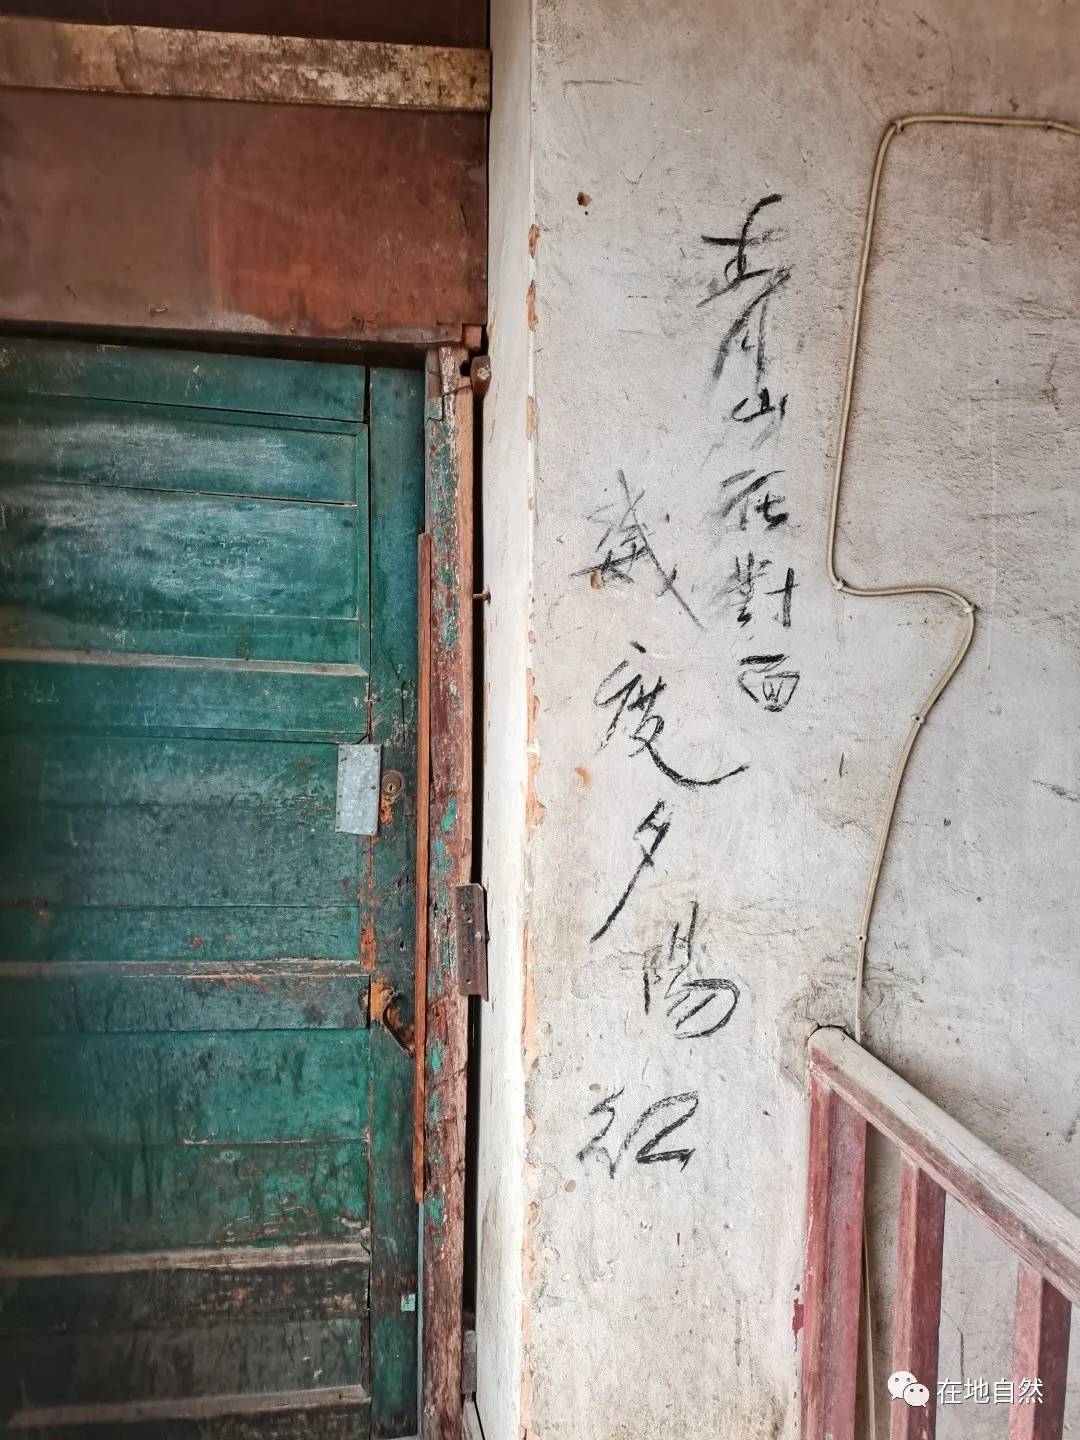 青山在對面
幾度夕陽红
在地自然